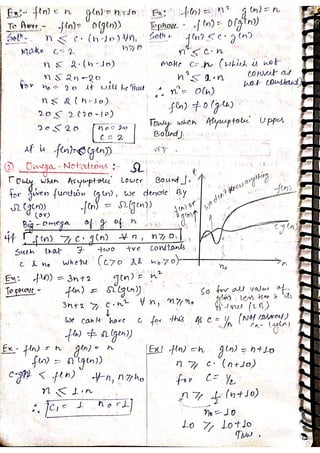 Ex:- f(n) = n g(n) = n-10
To Prove - f(n) = O(g(n))
Sol- n ≤ c·(n-10) ∀n, n≥n₀
make c = 2
n ≤ 2·(n-10)
n ≤ 2n-20
For n₀ = 20 it will be
n ≤ 2(n-10)
20 ≤ 2(20-10)
20 ≤ 20
n₀ = 20
c = 2
f(n) = O(g(n))
Ex: f(n) = n² g(n) = n
To prove - f(n) = O(g(n))
Sol: f(n) ≤ c·g(n)
n² ≤ c·n
make c = n (which is not correct as not constant)
n² ≤ n·n
∴ n² = O(n)
f(n) ≠ O(g(n))
Only when Asymptotic Upper
Bound
② Omega-Notations :- Ω
Only when Asymptotic Lower Bound
For given function g(n), we denote By
Ω(g(n)) f(n) = Ω(g(n))
(or)
Big-omega of g of n
if f(n) ≥ c·g(n) ∀n, n≥n₀
Such that ∃ two +ve constants
c & n₀ where (c>0 & n₀≥0)
f(n)
c g(n)
n₀
n
Ex: f(n) = 3n+2 g(n) = n²
To prove - f(n) = Ω(g(n))
3n+2 ≥ c·n² ∀n, n≥n₀
we can't have c for this
f(n) ≠ Ω(g(n))
So for all value of
Ex- f(n) = n g(n) = n
f(n) = Ω(g(n))
c·g(n) ≤ f(n) ∀n, n≥n₀
n ≤ 1·n
∴ C₁ = 1 n₀ = 1
Ex: f(n) = n g(n) = n+10
n ≥ c·(n+10)
for c = ½
n ≥ ½(n+10)
n₀ = 10
10 ≥ 10+10
True.